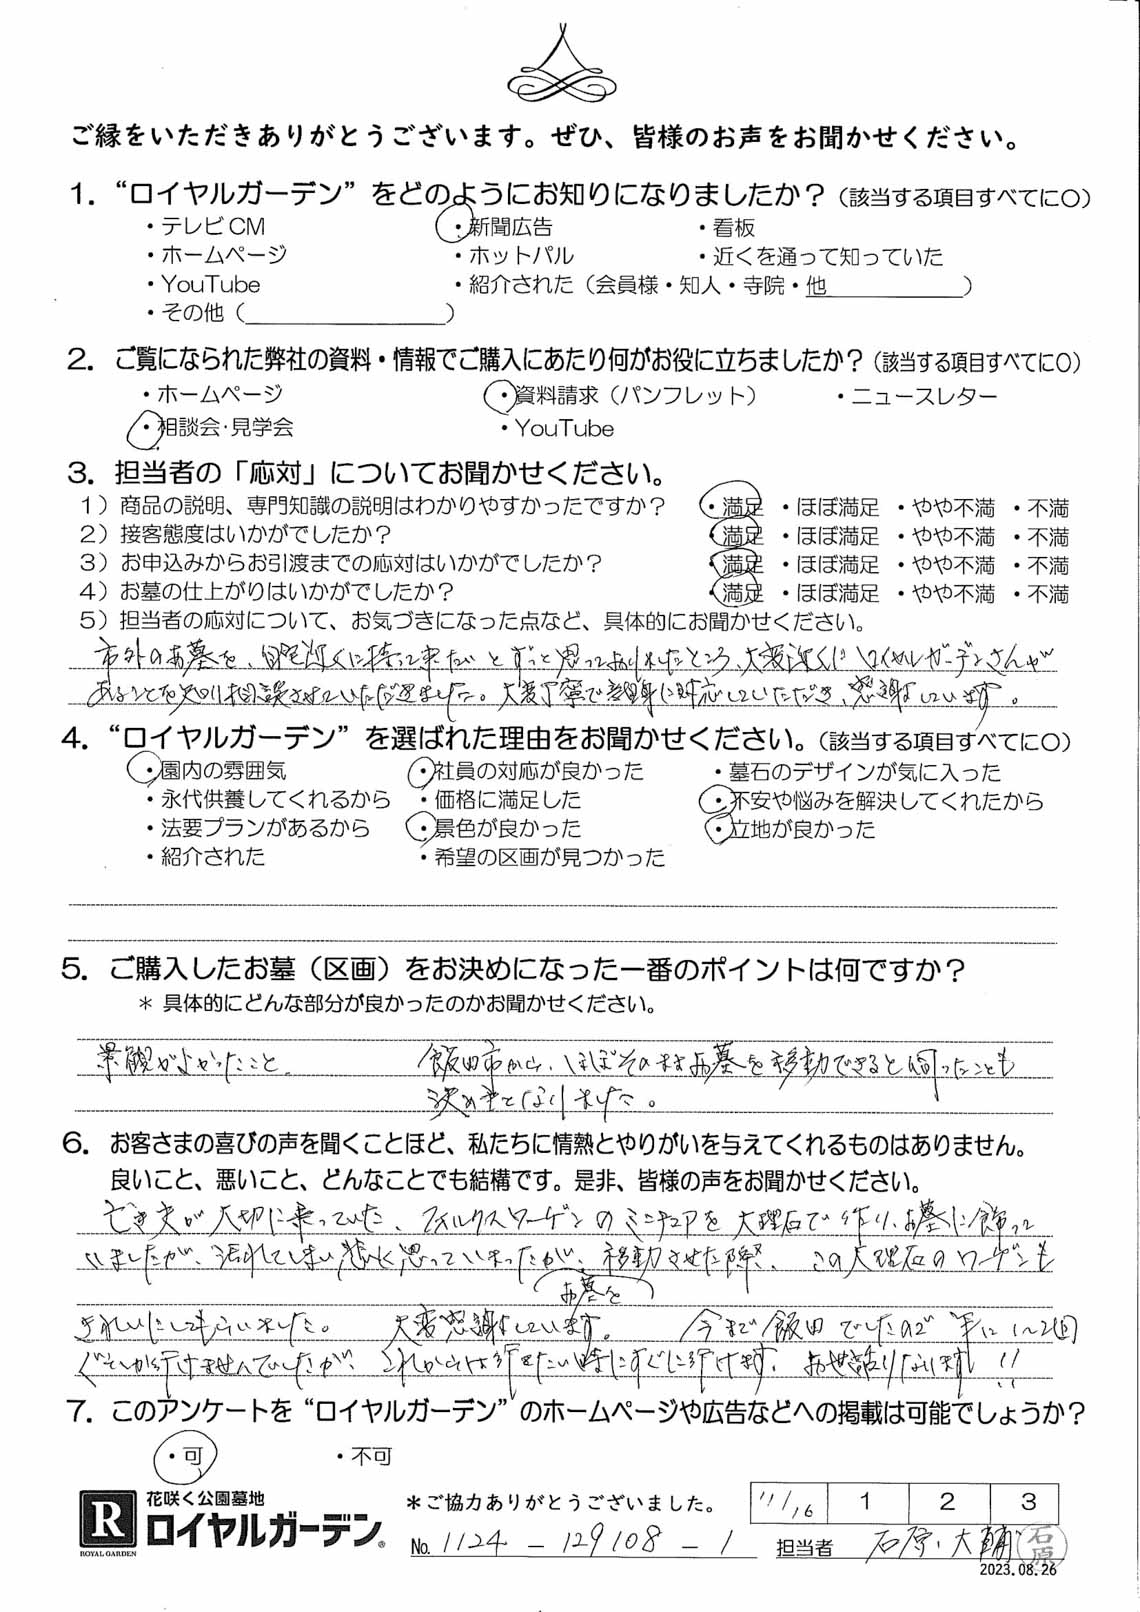 ご縁をいただきありがとうございます。ぜひ、皆様のお声をお聞かせください。
1. “ロイヤルガーデン” をどのようにお知りになりましたか？（該当する項目すべてに〇）
・テレビCM ・新聞広告 ・看板
・ホームページ ・ホットパル ・近くを通って知っていた
・YouTube ・紹介された（会員様・知人・寺院・他____________）
・その他（__________________）
2. ご覧になられた弊社の資料・情報でご購入にあたり何がお役に立ちましたか？（該当する項目すべてに〇）
・ホームページ ・資料請求（パンフレット） ・ニュースレター
・相談会・見学会 ・YouTube
3. 担当者の「応対」についてお聞かせください。
1）商品の説明、専門知識の説明はわかりやすかったですか？ ・満足 ・ほぼ満足 ・やや不満 ・不満
2）接客態度はいかがでしたか？ ・満足 ・ほぼ満足 ・やや不満 ・不満
3）お申込みからお引渡までの応対はいかがでしたか？ ・満足 ・ほぼ満足 ・やや不満 ・不満
4）お墓の仕上がりはいかがでしたか？ ・満足 ・ほぼ満足 ・やや不満 ・不満
5）担当者の応対について、お気づきになった点など、具体的にお聞かせください。
市外のお墓を、自宅近くに持って来たいとずっと思っておりましたところ、大変近くにロイヤルガーデンさんが
あることを知り相談させていただきました。大変丁寧で親身に対応していただき、感謝しています。
4. “ロイヤルガーデン” を選ばれた理由をお聞かせください。（該当する項目すべてに〇）
・園内の雰囲気 ・社員の対応が良かった ・墓石のデザインが気に入った
・永代供養してくれるから ・価格に満足した ・不安や悩みを解決してくれたから
・法要プランがあるから ・景色が良かった ・立地が良かった
・紹介された ・希望の区画が見つかった
5. ご購入したお墓（区画）をお決めになった一番のポイントは何ですか？
＊ 具体的にどんな部分が良かったのかお聞かせください。
景観がよかったこと 飯田市から、ほぼそのままお墓を移動できると伺ったことも
決め手となりました。
6. お客さまの喜びの声を聞くことほど、私たちに情熱とやりがいを与えてくれるものはありません。
良いこと、悪いこと、どんなことでも結構です。是非、皆様の声をお聞かせください。
亡き夫が大切に乗っていた、フォルクスワーゲンのミニチュアを大理石で作り、お墓に飾って
いましたが、汚れてしまい悲しく思っていましたが、移動させた際、この大理石のワーゲンも
お墓を
きれいにしてもらいました。 大変感謝しています。 今まで飯田でしたので年に1〜2回
ぐらいしか行けませんでしたが、これからは行きたい時にすぐに行けます。お世話になります!!
7. このアンケートを “ロイヤルガーデン” のホームページや広告などへの掲載は可能でしょうか？
・可 ・不可
R ROYAL GARDEN 花咲く公園墓地
ロイヤルガーデン®
＊ご協力ありがとうございました。 11/16 1 2 3
No. 1124 － 129108 － 1 担当者 石原・大輔 石原
2023.08.26